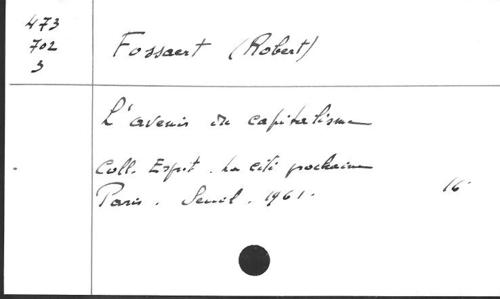 473
702
3
Fossaert (Robert)
L'avenir du capitalisme
Coll. Esprit. La cité prochaine
Paris. Seuil. 1961.
16